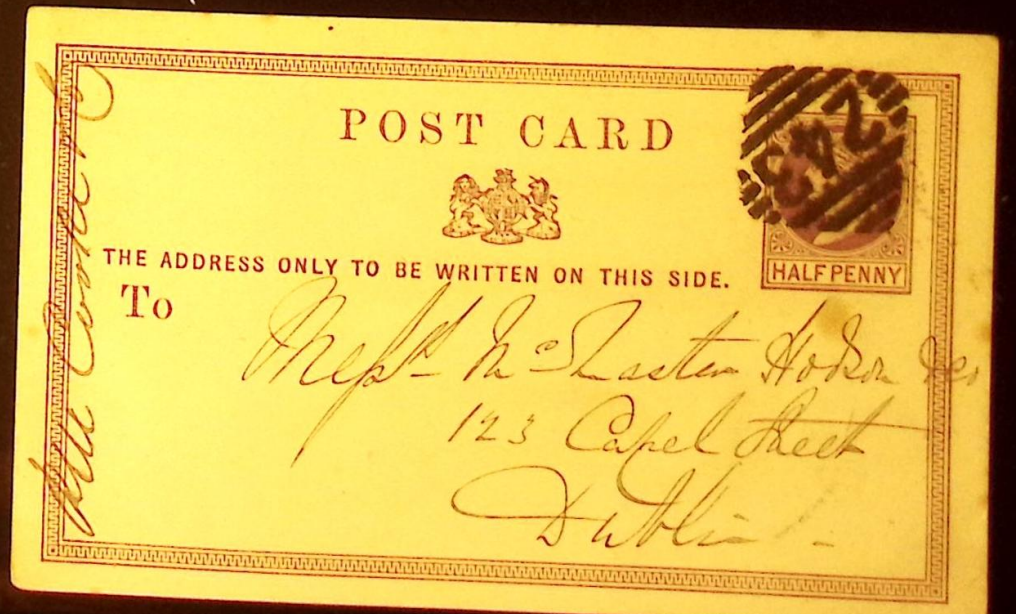 POST CARD
THE ADDRESS ONLY TO BE WRITTEN ON THIS SIDE.
To
HALFPENNY
Messrs McMaster Hodson & Co
123 Capel Street
Dublin